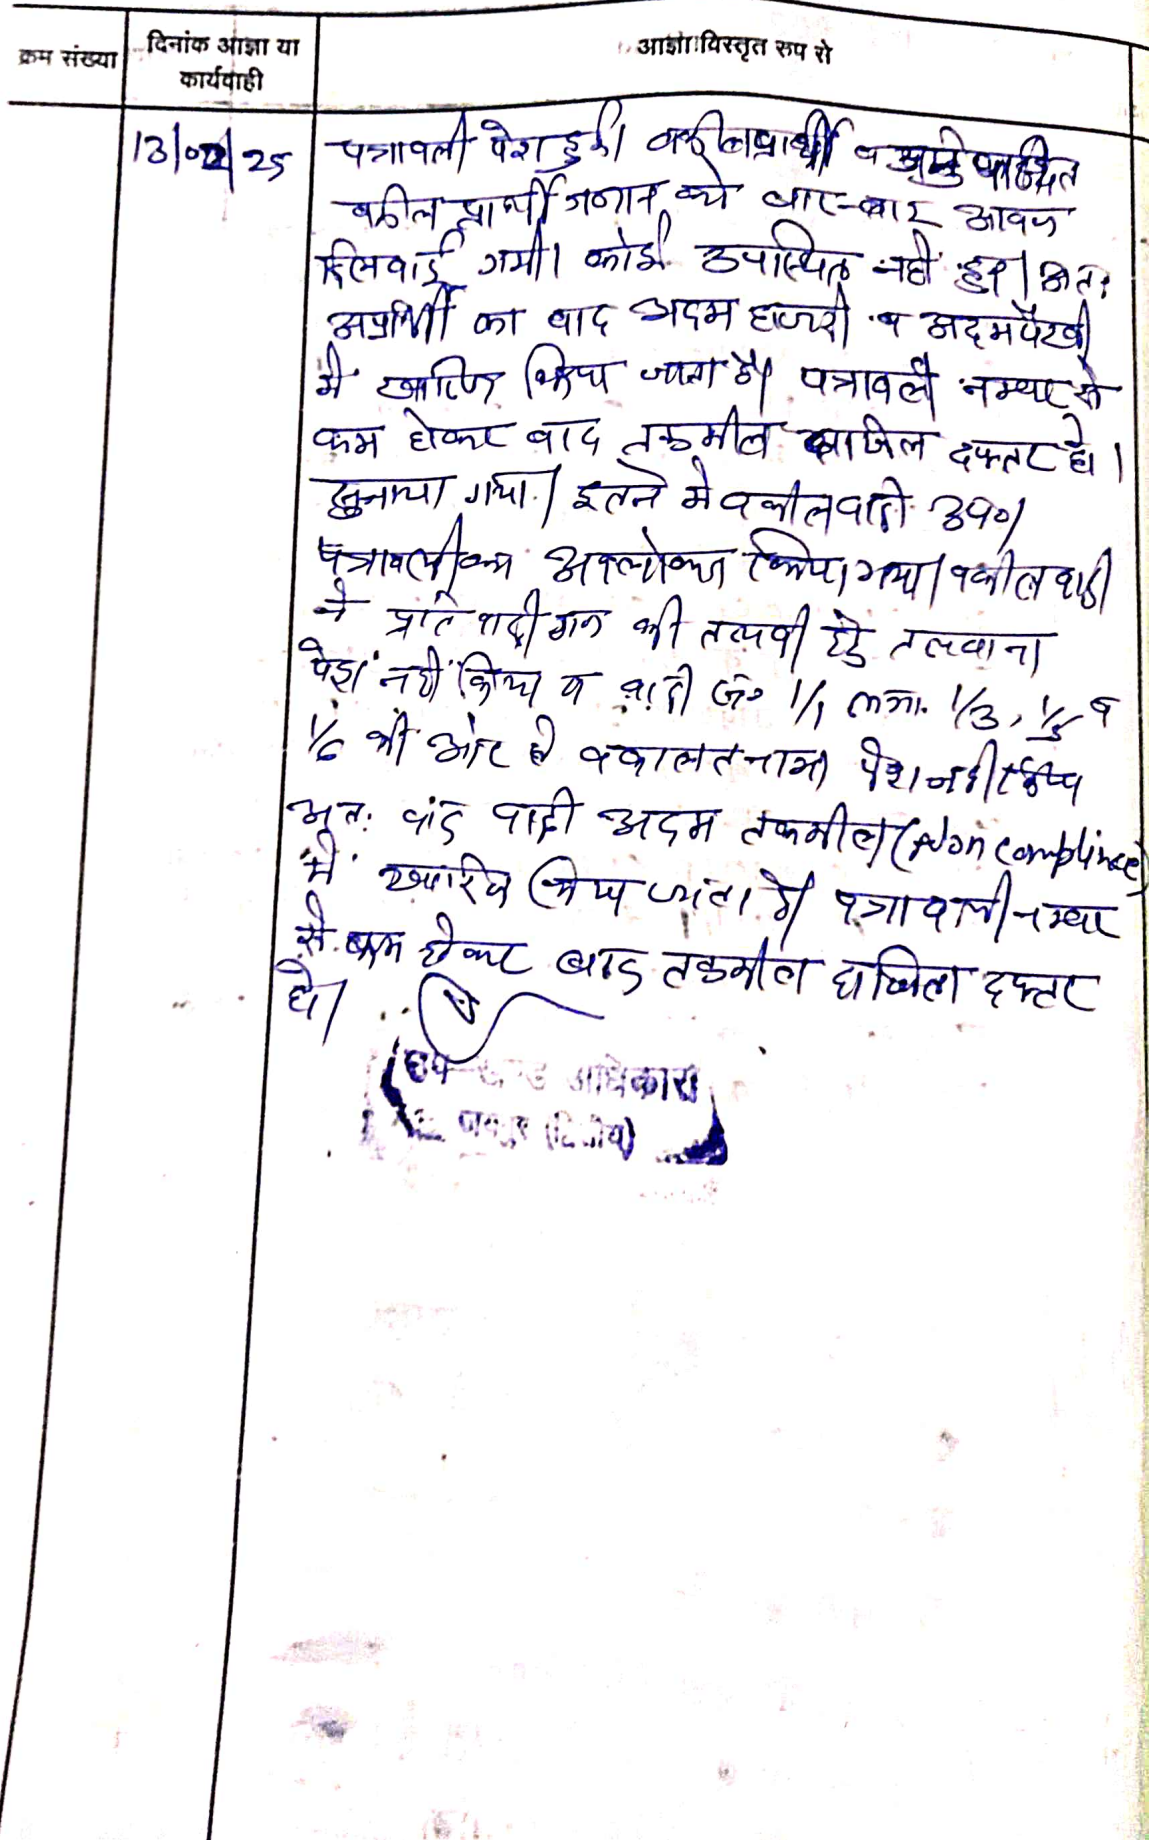 क्रम संख्या
दिनांक आज्ञा या
कार्यवाही
आज्ञा विस्तृत रुप से
13/02/25
पत्रावली पेश हुई। वकील प्रार्थी व अनुपस्थित
वकील प्रार्थी गणान को बार-बार आवाज
दिलवाई गयी। कोई उपास्थित नही हुए। अतः
का वाद अदम हाजरी व अदम पैरवी
मे खारिज किया जाता है। पत्रावली नम्बर से
कम होकर वाद तकमील दाखिल दफ्तर हो।
सुनाया गया। इतने मे वकील वादी उप०।
पत्रावली का अवलोकन किया गया। वकील वादी
ने प्रतिवादीगन की तलबी हेतु तलवाना
पेश नही किया व वादी सं० 1/1 1/3, 1/5 व
1/6 की ओर से वकालतनामा पेश नही किया
अतः वाद वादी अदम तकमील (Non complince)
मे खारिज किया जाता है। पत्रावली नम्बर
से कम होकर बाद तकमील दाखिल दफ्तर
हो।
उप खण्ड अधिकारी
जयपुर (द्वितीय)